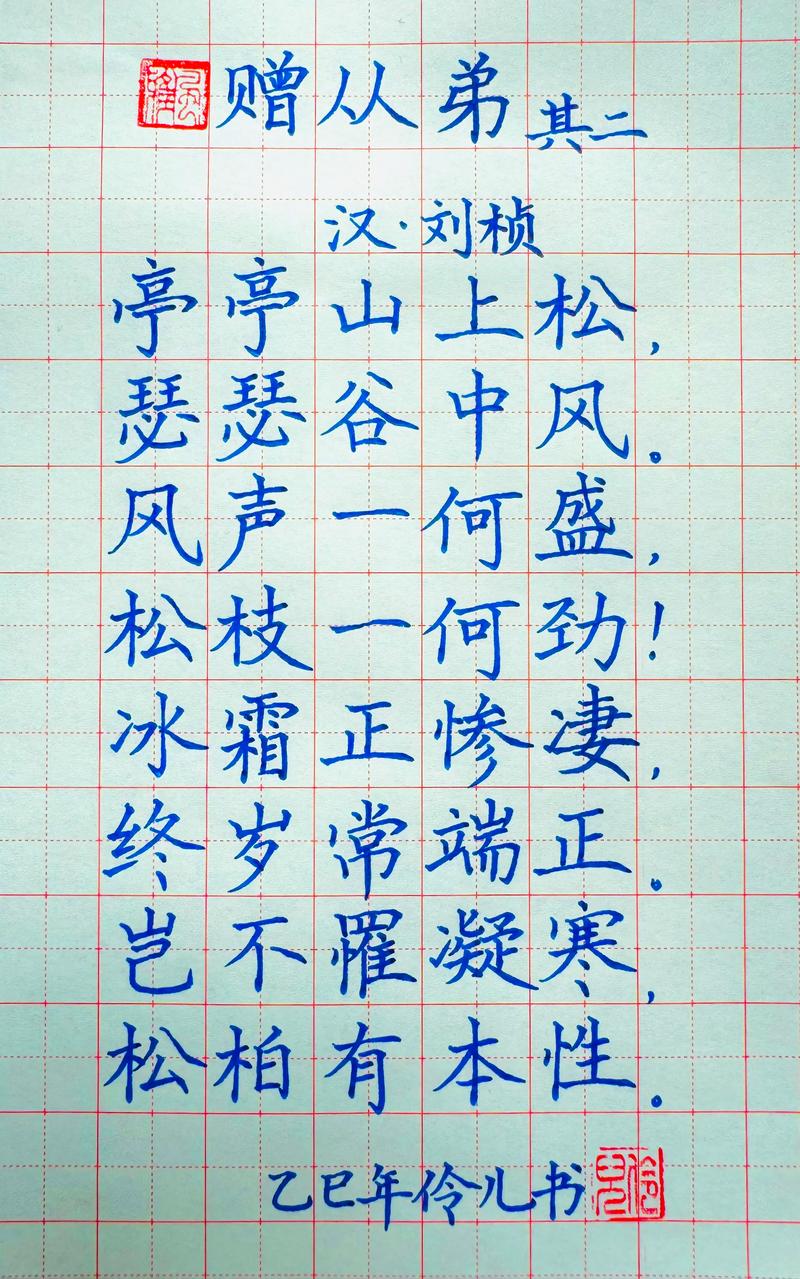 赠从弟 其二
汉·刘桢
亭亭山上松，
瑟瑟谷中风。
风声一何盛，
松枝一何劲！
冰霜正惨凄，
终岁常端正。
岂不罹凝寒，
松柏有本性。
乙巳年伶儿书
伶儿